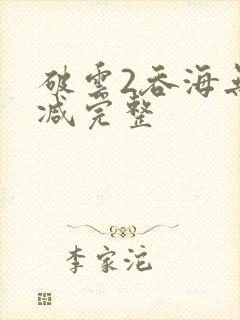 破雲2吞海
减完整
李家沱